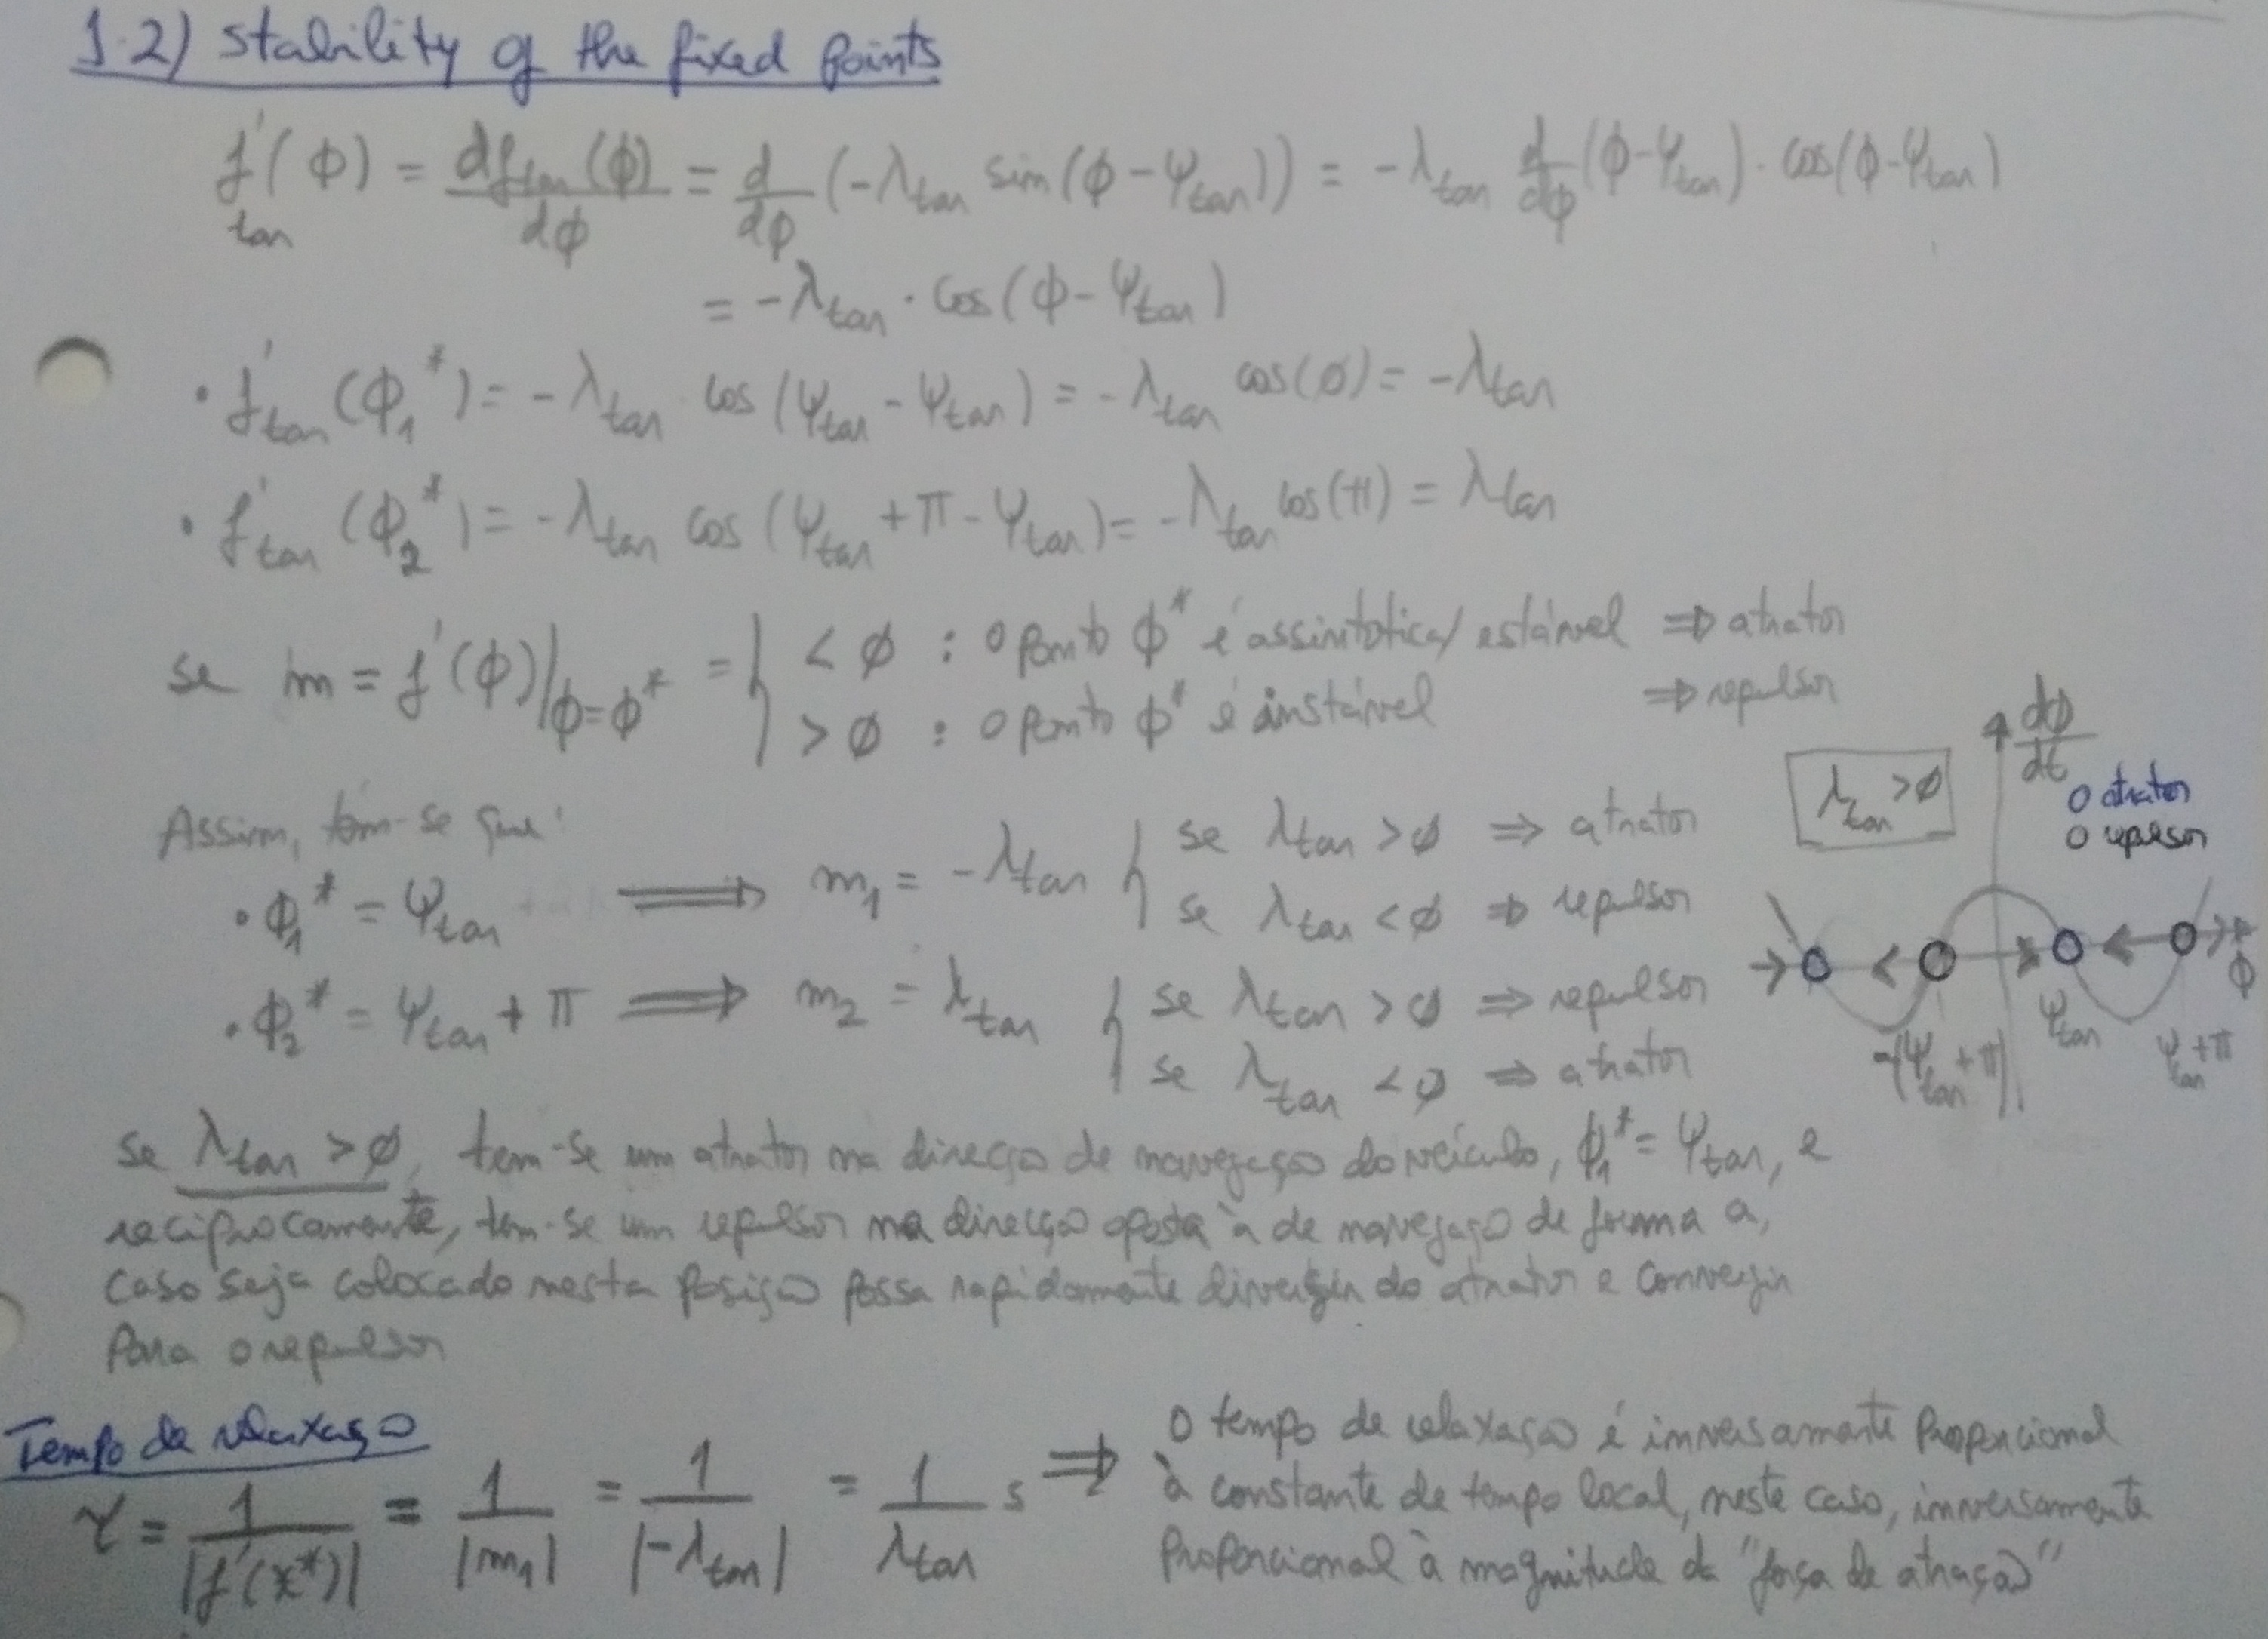 1.2) Stability of the fixed points
f'tan(ϕ) = dftan(ϕ)/dϕ = d/dϕ (-λtan sin(ϕ-Ψtan)) = -λtan d/dϕ (ϕ-Ψtan) · cos(ϕ-Ψtan)
= -λtan · cos(ϕ-Ψtan)
• f'tan(ϕ1*) = -λtan cos(Ψtan - Ψtan) = -λtan cos(∅) = -λtan
• f'tan(ϕ2*) = -λtan cos(Ψtan + π - Ψtan) = -λtan cos(π) = λtan
se m = f'(ϕ)|ϕ=ϕ* = { < ∅ : o ponto ϕ* é assintotica/ estável ⇒ atrator
> ∅ : o ponto ϕ* é instável ⇒ repulsor
Assim, tem-se que:
• ϕ1* = Ψtan ⟹ m1 = -λtan { se λtan > ∅ ⇒ atrator
se λtan < ∅ ⇒ repulsor
• ϕ2* = Ψtan + π ⟹ m2 = λtan { se λtan > ∅ ⇒ repulsor
se λtan < ∅ ⇒ atrator
λtan > ∅
dϕ/dt
O atrator
O repulsor
ϕ
-(Ψtan + π)
Ψtan
Ψtan + π
se λtan > ∅, tem-se um atrator na direcção de navegação do veículo, ϕ1* = Ψtan, e
reciprocamente, tem-se um repulsor na direcção oposta à de navegação de forma a,
caso seja colocado nesta posição possa rapidamente divergir do atrator e convergir
para o repulsor
Tempo de relaxação
τ = 1/|f'(x*)| = 1/|m1| = 1/|-λtan| = 1/λtan s ⟹ O tempo de relaxação é inversamente proporcional
à constante de tempo local, neste caso, inversamente
proporcional à magnitude da "força de atração"